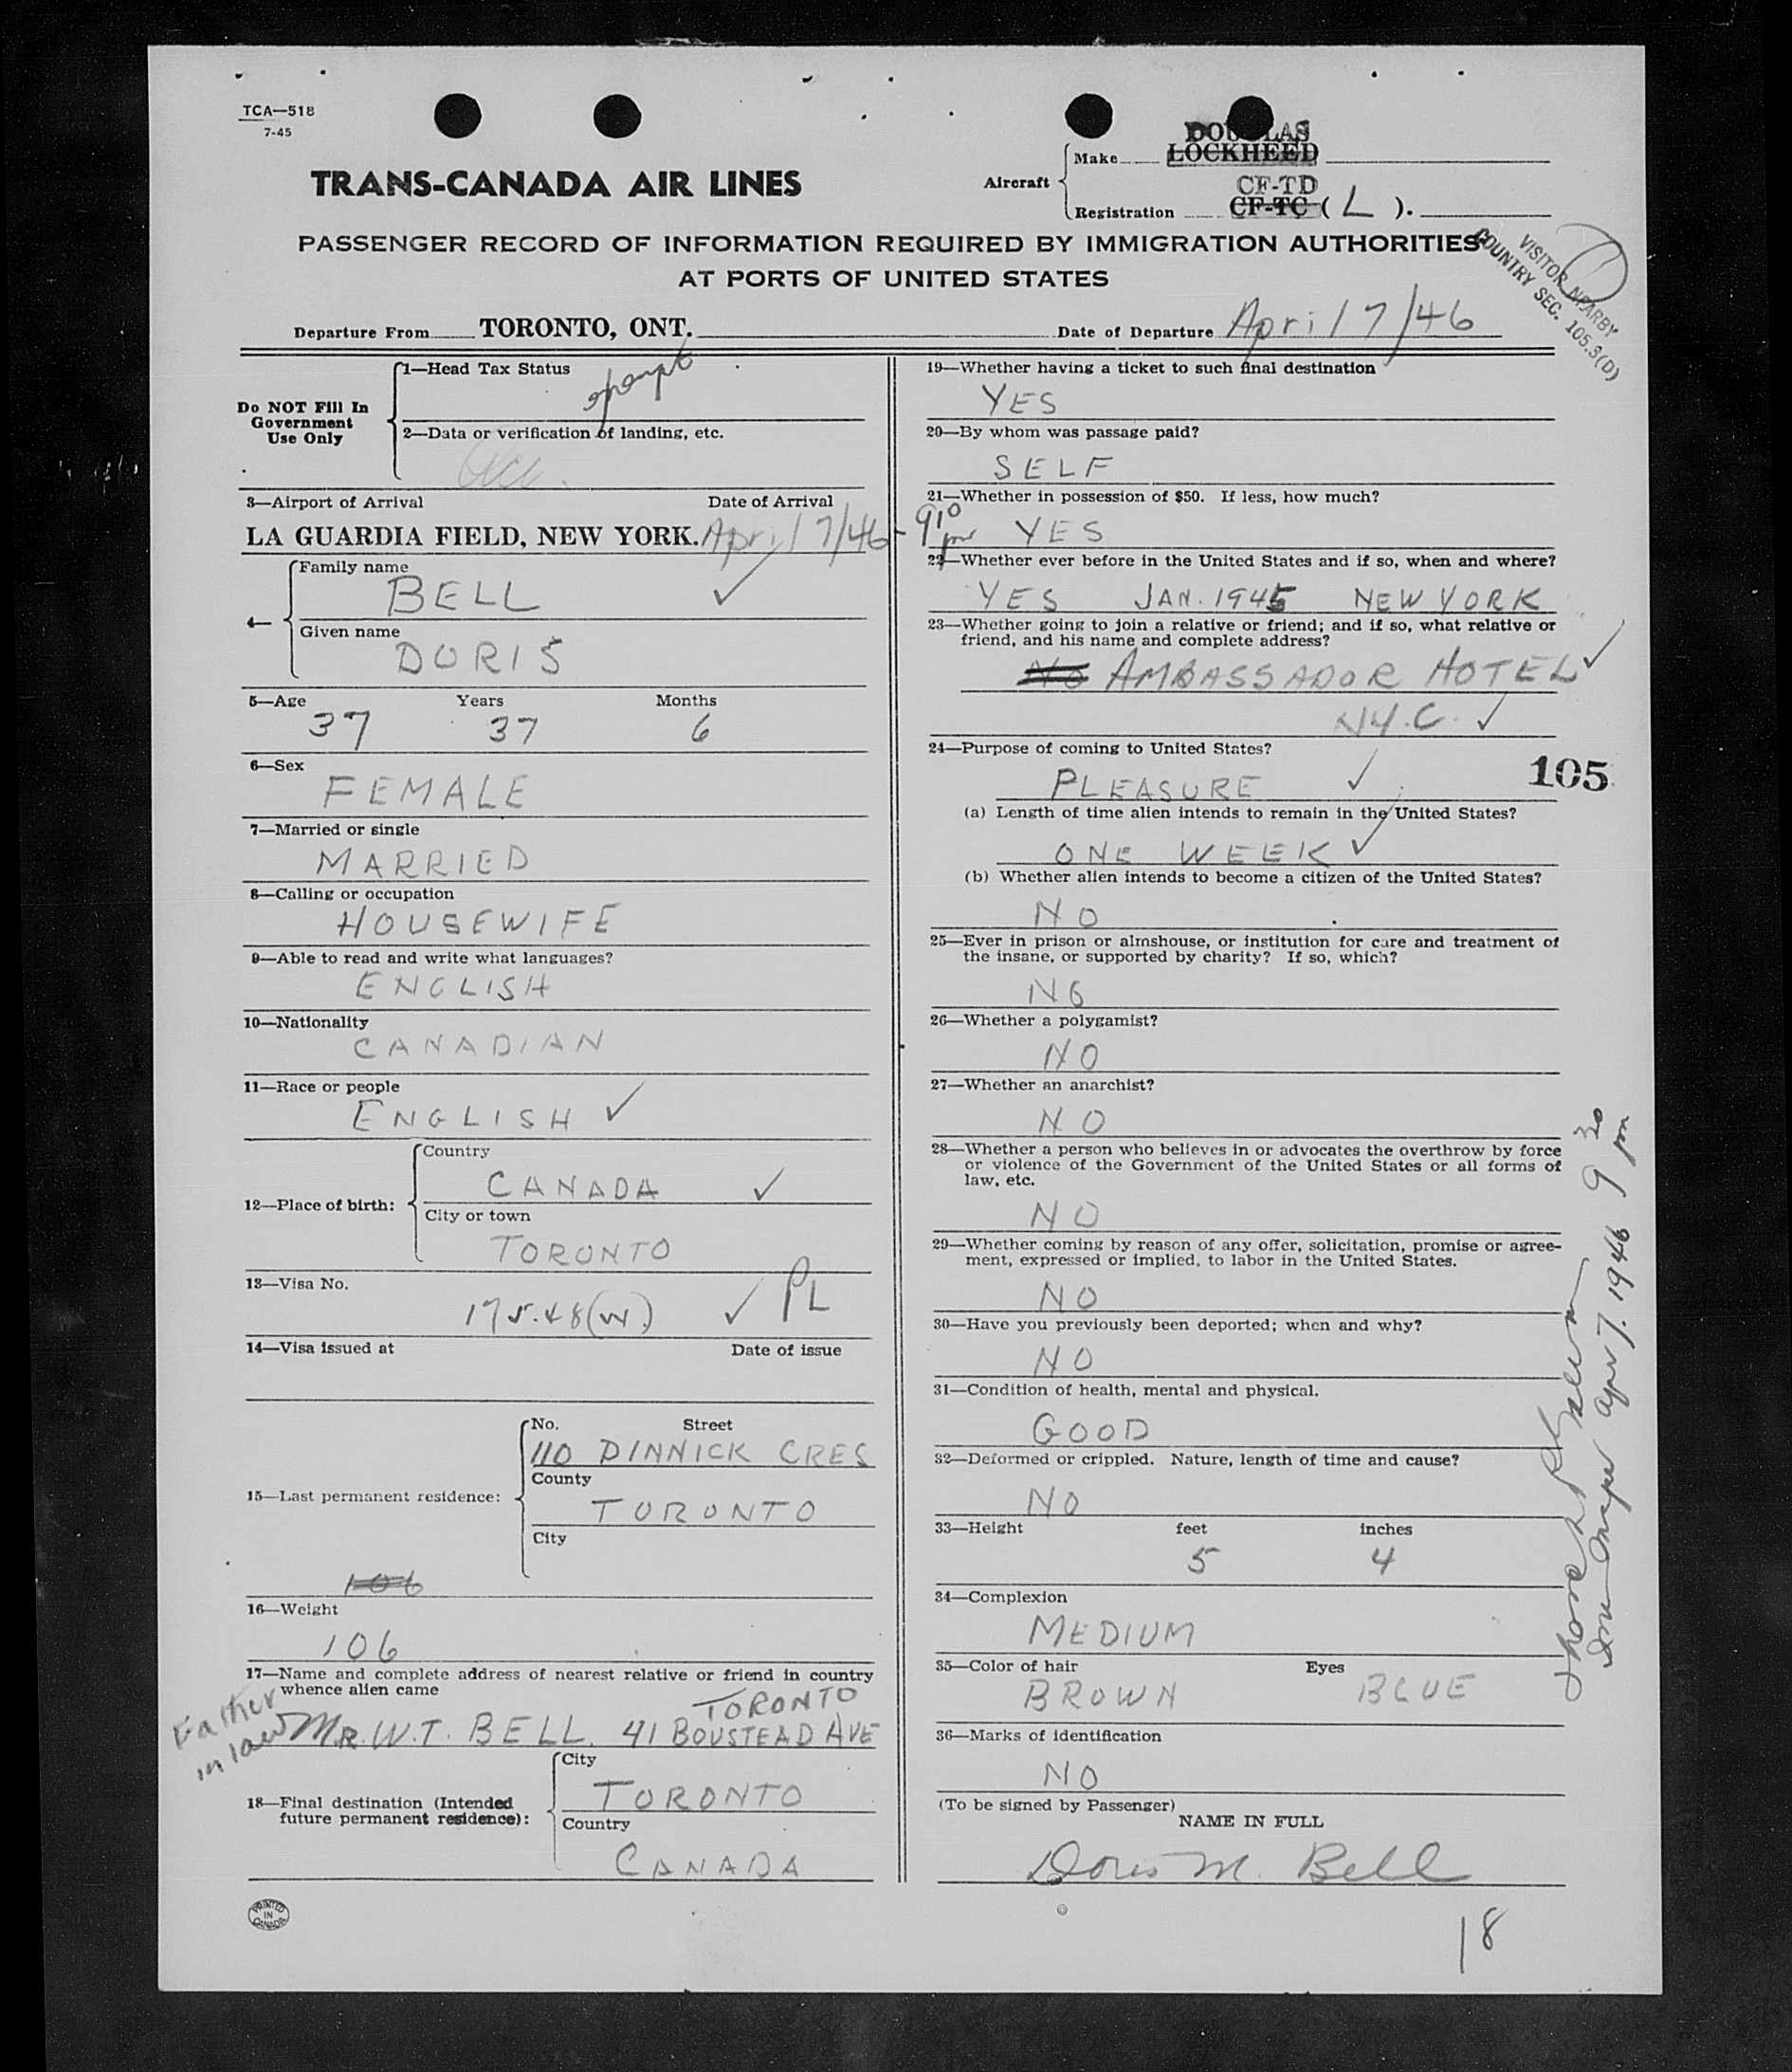 TCA—518
7-45
TRANS-CANADA AIR LINES
Aircraft
Make
DOUGLAS
LOCKHEED
Registration
CF-TD
CF-TC ( L ).
PASSENGER RECORD OF INFORMATION REQUIRED BY IMMIGRATION AUTHORITIES
AT PORTS OF UNITED STATES
VISITOR NEARBY
COUNTRY SEC. 105.3(D)
Departure From TORONTO, ONT. Date of Departure April 7/46
Do NOT Fill In
Government
Use Only
1—Head Tax Status
exempt
2—Data or verification of landing, etc.
3—Airport of Arrival Date of Arrival
LA GUARDIA FIELD, NEW YORK. April 7/46 - 9 10 pm
4—
Family name
BELL
Given name
DORIS
5—Age Years Months
37 37 6
6—Sex
FEMALE
7—Married or single
MARRIED
8—Calling or occupation
HOUSEWIFE
9—Able to read and write what languages?
ENGLISH
10—Nationality
CANADIAN
11—Race or people
ENGLISH
12—Place of birth:
Country
CANADA
City or town
TORONTO
13—Visa No.
175.48(W) PL
14—Visa issued at Date of issue
15—Last permanent residence:
No. Street
110 DINNICK CRES
County
TORONTO
City
106
16—Weight
106
17—Name and complete address of nearest relative or friend in country
whence alien came
TORONTO
Father
in law
MR. W.T. BELL. 41 BOUSTEAD AVE
18—Final destination (Intended
future permanent residence):
City
TORONTO
Country
CANADA
PRINTED
IN
CANADA
19—Whether having a ticket to such final destination
YES
20—By whom was passage paid?
SELF
21—Whether in possession of $50. If less, how much?
YES
22—Whether ever before in the United States and if so, when and where?
YES JAN. 1945 NEW YORK
23—Whether going to join a relative or friend; and if so, what relative or
friend, and his name and complete address?
NO AMBASSADOR HOTEL
N.Y.C.
24—Purpose of coming to United States?
PLEASURE
105
(a) Length of time alien intends to remain in the United States?
ONE WEEK
(b) Whether alien intends to become a citizen of the United States?
NO
25—Ever in prison or almshouse, or institution for care and treatment of
the insane, or supported by charity? If so, which?
NO
26—Whether a polygamist?
NO
27—Whether an anarchist?
NO
28—Whether a person who believes in or advocates the overthrow by force
or violence of the Government of the United States or all forms of
law, etc.
NO
29—Whether coming by reason of any offer, solicitation, promise or agree-
ment, expressed or implied, to labor in the United States.
NO
30—Have you previously been deported; when and why?
NO
31—Condition of health, mental and physical.
GOOD
32—Deformed or crippled. Nature, length of time and cause?
NO
33—Height feet inches
5 4
34—Complexion
MEDIUM
35—Color of hair Eyes
BROWN BLUE
36—Marks of identification
NO
(To be signed by Passenger)
NAME IN FULL
Doris M. Bell
Apr 7. 1946 9 30 pm
18